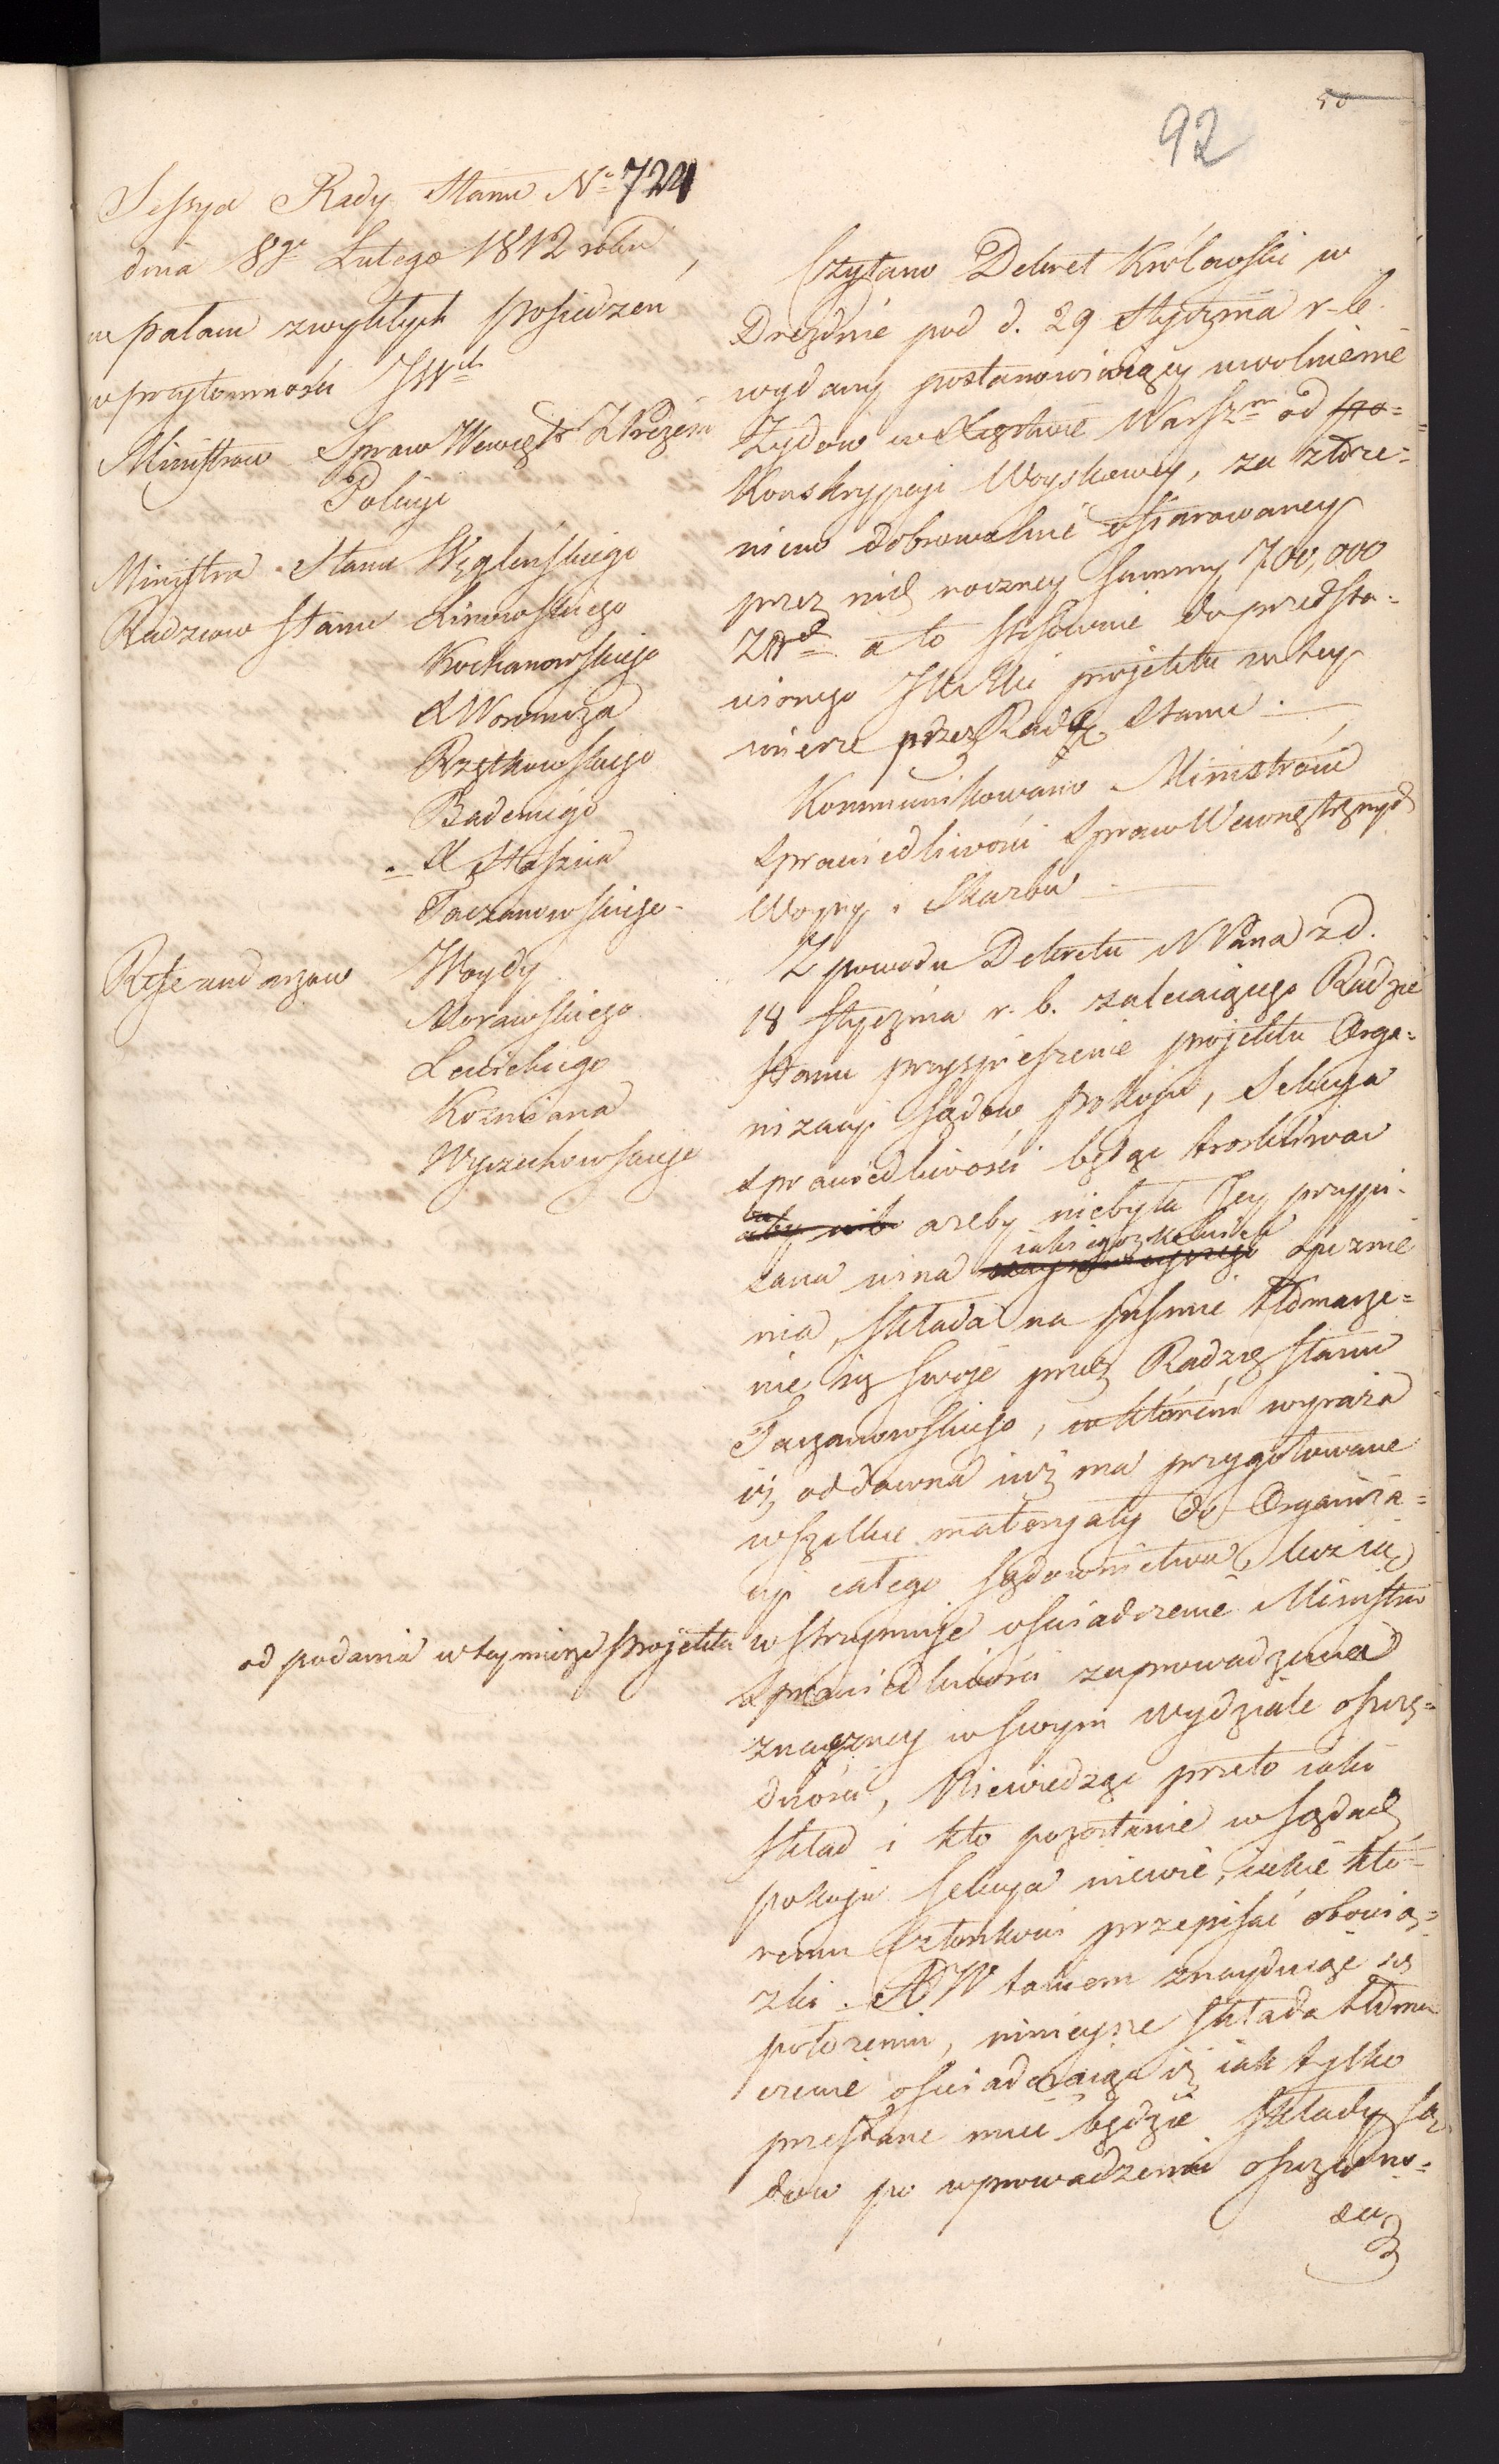 50
92
Sessya Rady Stanu No 724
dnia 8go Lutego 1812 roku
w pałacu zwykłych posiedzeń
w przytomności JWch
Ministrów Spraw Wewnętr
Policyi
Ministra Stanu Węgleńskiego
Radzców Stanu Linowskiego
Kochanowskiego
X Woronicza
Rzętkowskiego
Badeniego
X Staszica
Taczanowskiego
Referendarzów Woydy
Morawskiego
Lewickiego
Koźmiana
Wyczechowskiego
Czytano Dekret Królewski w
Dreźnie pod d. 29 Stycznia r. b.
wydany postanowiaiący uwolnienie
Żydow w Xięstwie Warszm od
Konskrypcyi Woyskowey, za złoże=
niem dobrowolnie ofiarowaney
przez nich roczney summy 700,000
Złtch a to stósownie do przedsta=
wionego JKMci projektu w tey
mierze przez Radę Stanu.
Kommunikowano Ministróm
Sprawiedliwości Spraw Wewnętrznych
Woyny i Skarbu
Z powodu Dekretu N Pana z d.
18 Stycznia r. b. zalecaiącego Radzie
Stanu przyspieszenie projektu Orga=
nizacyi sądów pokoju, Sekcya
Sprawiedliwości będąc troskliwa
ażeby niebyła Jey przypi=
sana wina iakiegozkolwiek opoznie
nia, składa na piśmie tłómacze=
nie się swoje przez Radzcę Stanu
Taczanowskiego, w którém wyraża
iż oddawna iuż ma przygotowane
wszelkie materyały do Organiza=
cyi całego sądownictwa, lecz ią
od podania w tey mierze projektu wstrzymuje oświadczenie Ministra
Sprawiedliwości zaprowadzenia
znaczney w swym wydziale oszczę=
dności, Niewiedząc przeto iaki
skład i kto pozostanie w sądach
pokoju sekcya niewie, iakie któ=
remu Członkowi przepisać obowią=
zki. W takiem znayduiąc się
położeniu, ninieysze składa tłóma
czenie oświadczaiąc iż iak tylko
przesłane mieć będzie składy są
dów po wprowadzeniu oszczędno=